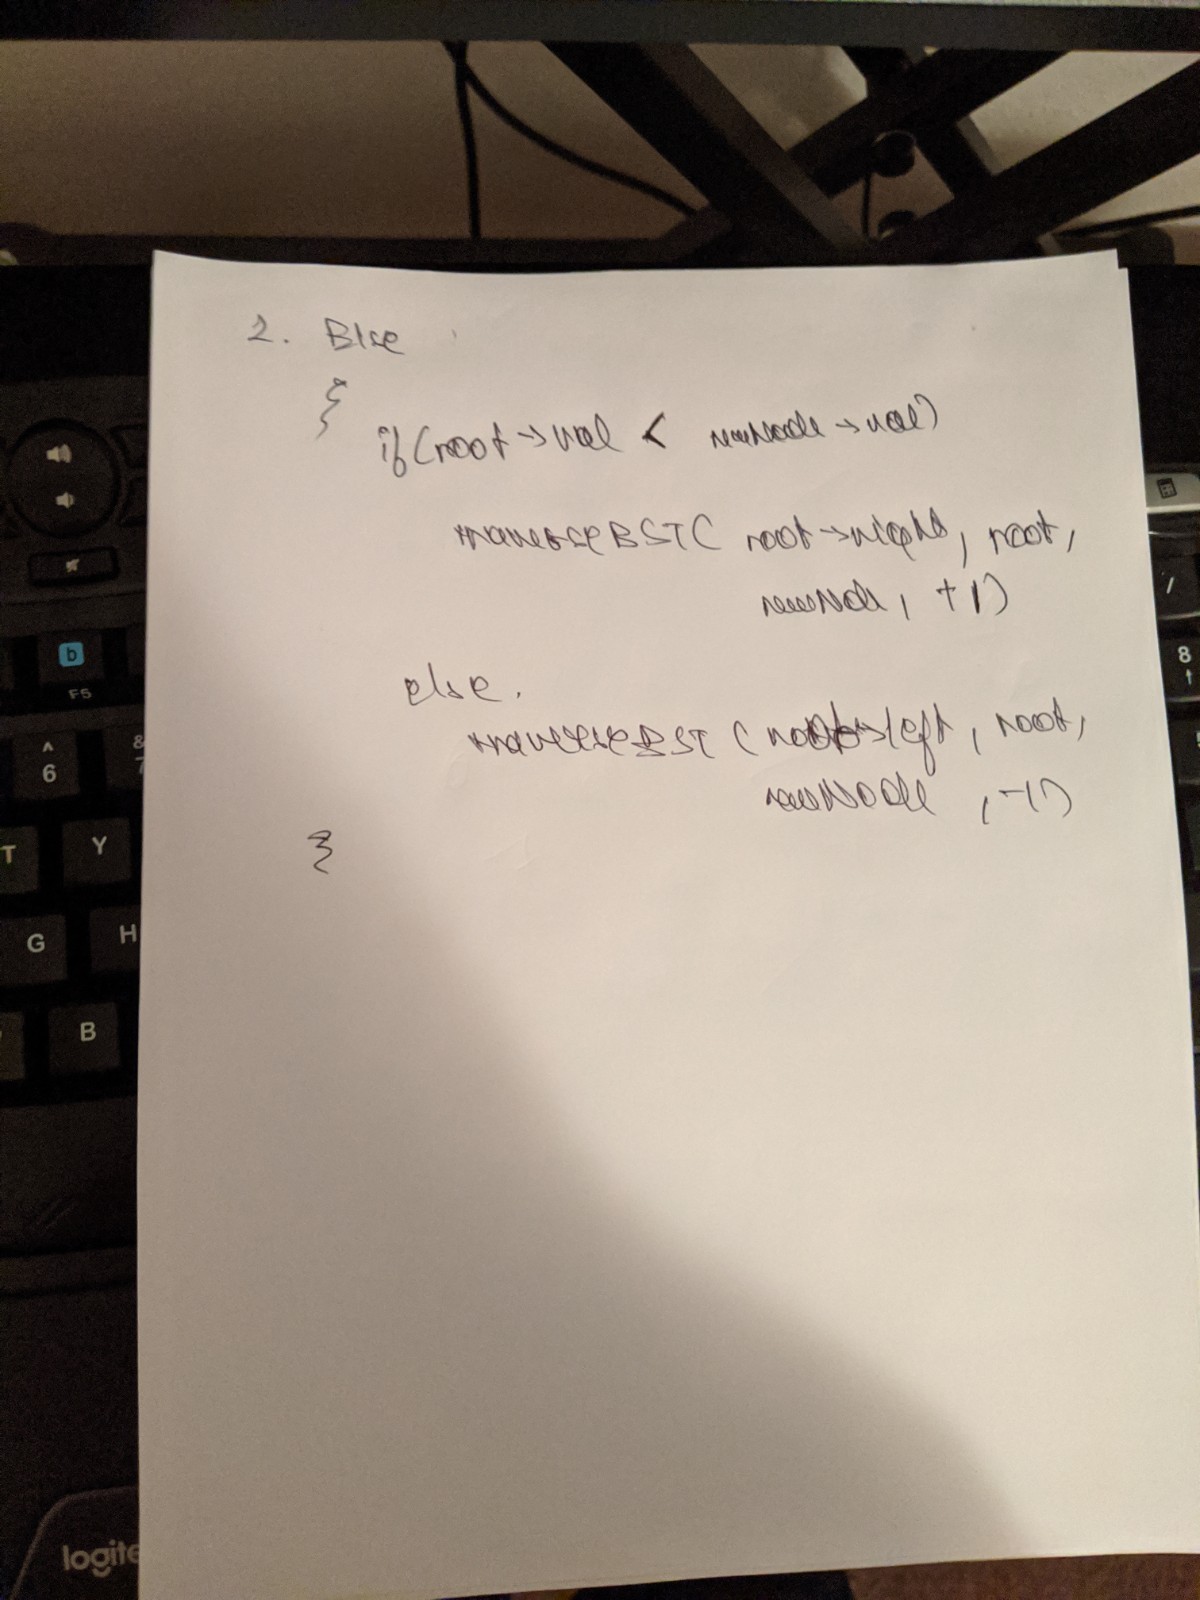 2. Else
{
if(root->val < newNode->val)
traverseBST( root->right, root,
newNode, +1)
else.
traverseBST (root->left, root,
newNode , -1)
}
b
F5
^
6
&
7
T
Y
G
H
B
/
8
logite